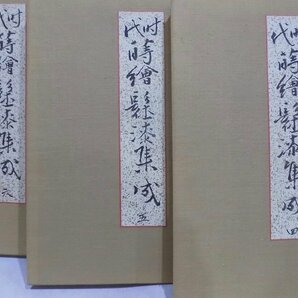 时代蒔繪髹漆集成 四
时代蒔繪髹漆集成 五
时代蒔繪髹漆集成 六